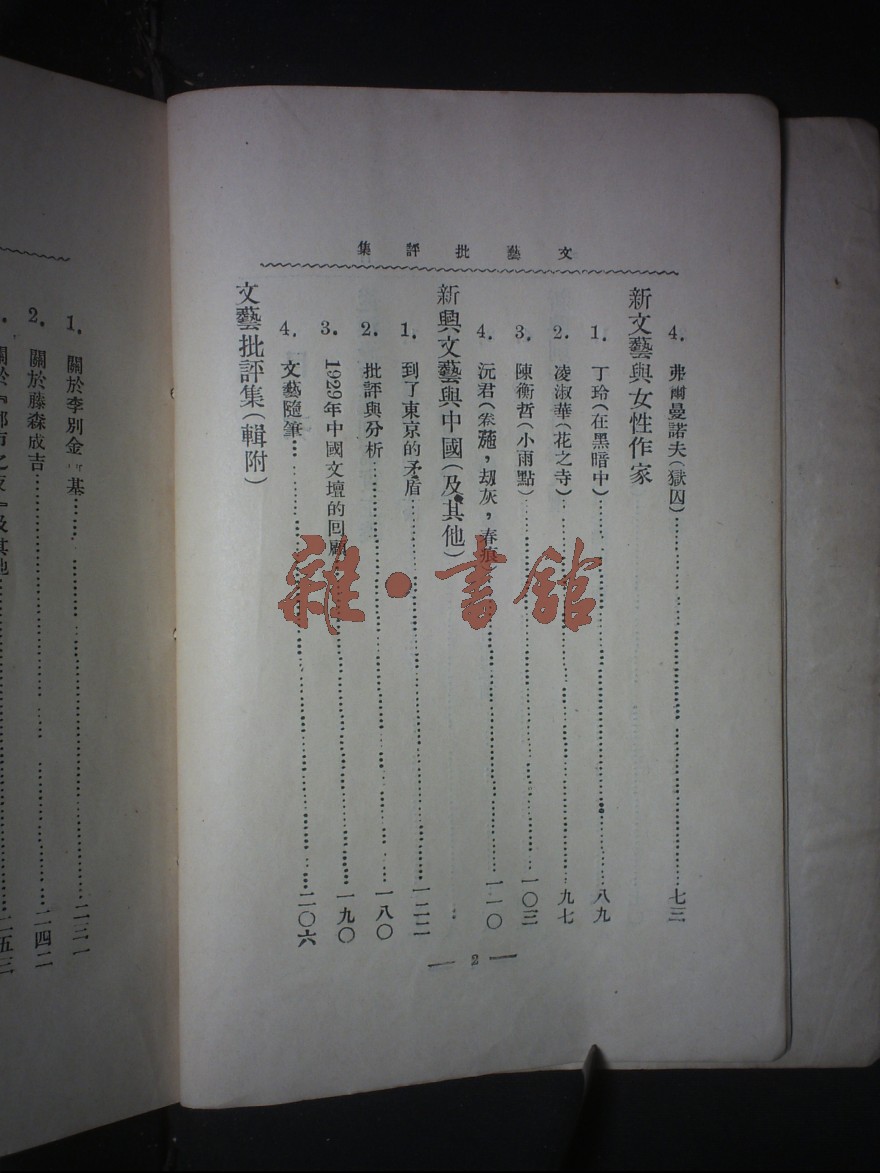 文藝批評集
4. 弗爾曼諾夫(獄囚)……七三
新文藝與女性作家
1. 丁玲(在黑暗中)……八九
2. 凌淑華(花之寺)……九七
3. 陳衡哲(小雨點)……一〇三
4. 沅君(卷葹，刼灰，春痕……一一〇
新興文藝與中國(及其他)
1. 到了東京的矛盾……一二二
2. 批評與分析……一八〇
3. 1929年中國文壇的回顧……一九〇
4. 文藝隨筆……二〇六
文藝批評集(輯附)
— 2 —
1. 關於李別金 基……二三一
2. 關於藤森成吉……二四二
關於『都市之夜』及其他……二五三
雜·書館